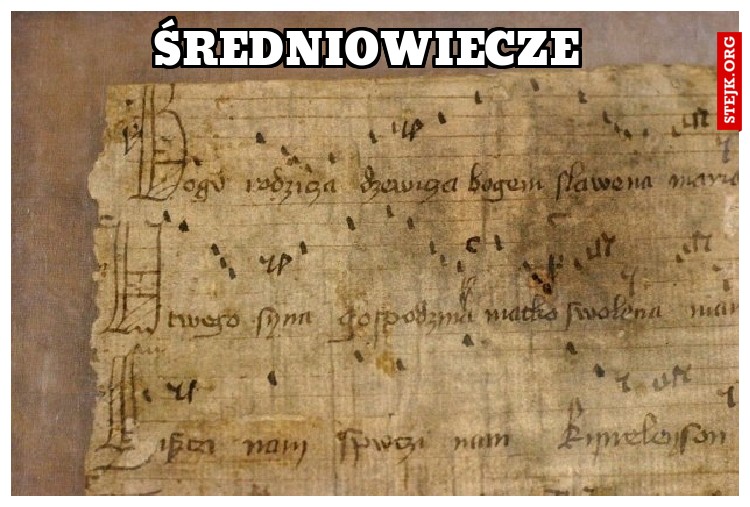 ŚREDNIOWIECZE
STEJK.ORG
Bogv rodzicza dzewicza bogem slawena maria
U twego syna gospodzina matko swolena
nam spwczi nam Kyrieleyson